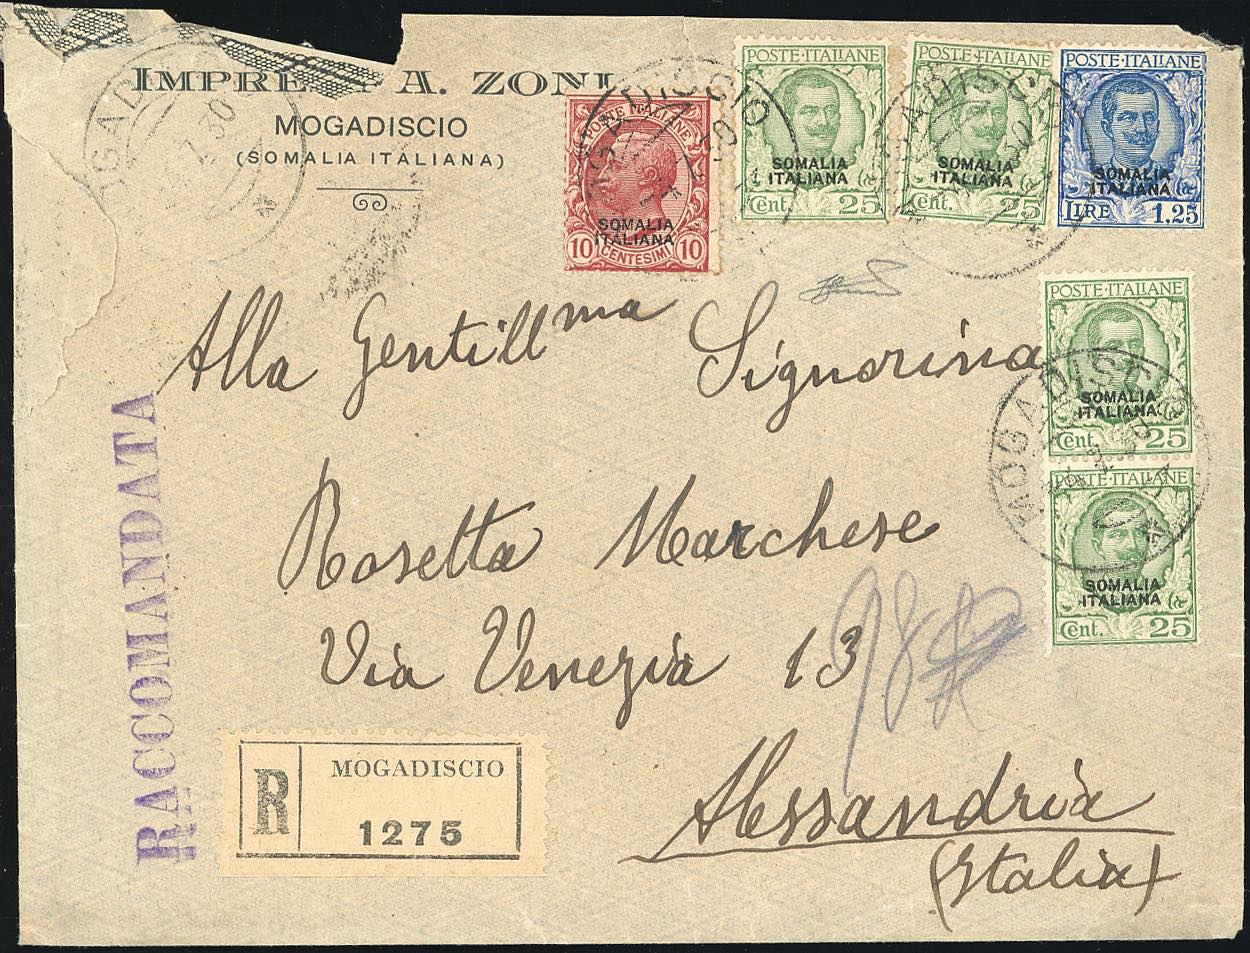 IMPRE A. ZONI
MOGADISCIO
(SOMALIA ITALIANA)
POSTE ITALIANE
SOMALIA
ITALIANA
10 CENTESIMI 10
POSTE·ITALIANE
SOMALIA
ITALIANA
Cent. 25
POSTE·ITALIANE
SOMALIA
ITALIANA
Cent. 25
POSTE·ITALIANE
SOMALIA
ITALIANA
LIRE 1.25
POSTE·ITALIANE
SOMALIA
ITALIANA
Cent. 25
POSTE·ITALIANE
SOMALIA
ITALIANA
Cent. 25
MOGADISCIO
Alla Gentill ma Signorina
Rosetta Marchese
Via Venezia 13
Alessandria
(Italia)
RACCOMANDATA
R MOGADISCIO
1275